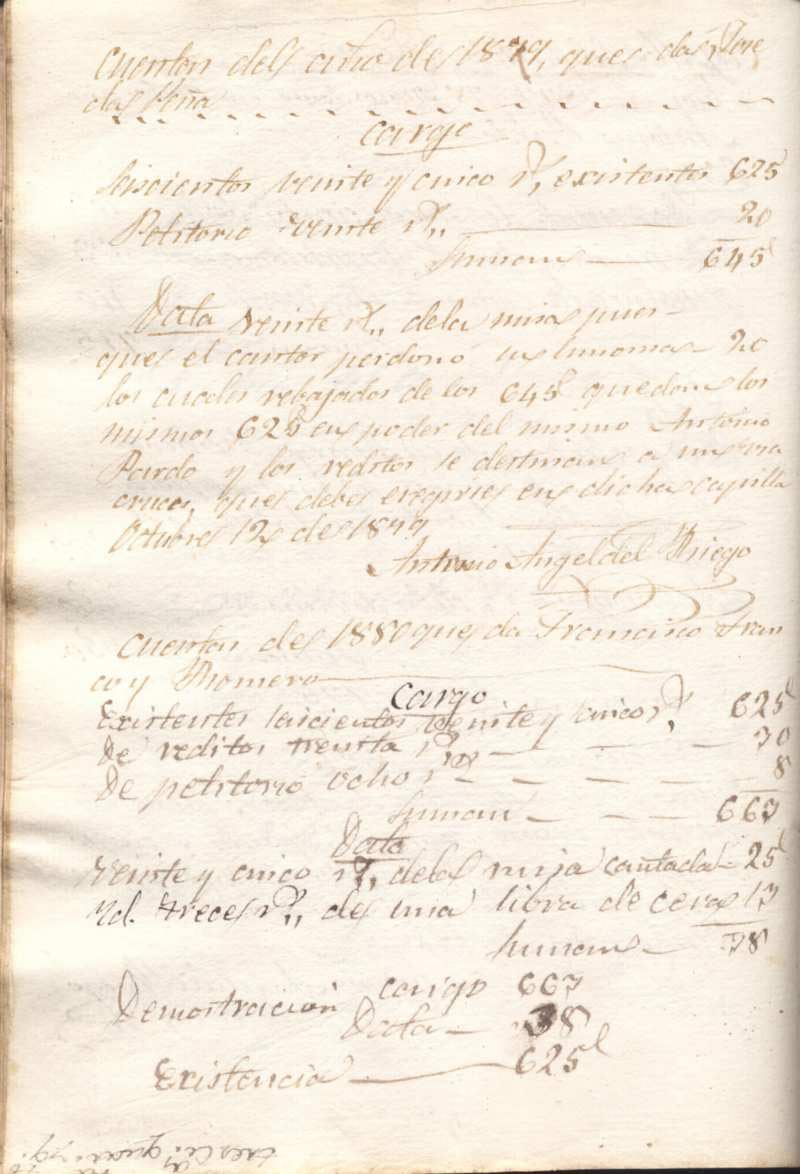 Cuentas del año de 1879, que da Jose
da Peña
Cargo
Seiscientos veinte y cinco rs, existentes 625
Petitorio veinte rs,, 20
Suman 645
Data veinte rs,, de la misa pues
que el cantor perdono su limosna 20
los cuales rebajados de los 645 quedan los
mismos 625 en poder del mismo Antonio
Pardo y los reditos se destinan a
cruces, que debe eregirse en dicha capilla
Octubre 12 de 1879
Antonio Angel del Riego
Cuentas de 1880 que da Francisco Fran
co y Romero
Cargo
Existentes seiscientos veinte y cinco rs, 625
De reditos treinta rs 30
De petitorio ocho rs 8
Suman 663
Data
Veinte y cinco rs,, de la misa cantada 25
Yd. trece rs,, de una libra de cera 13
Suman 38
Demostracion cargo 663
Data 38
Existencia 625